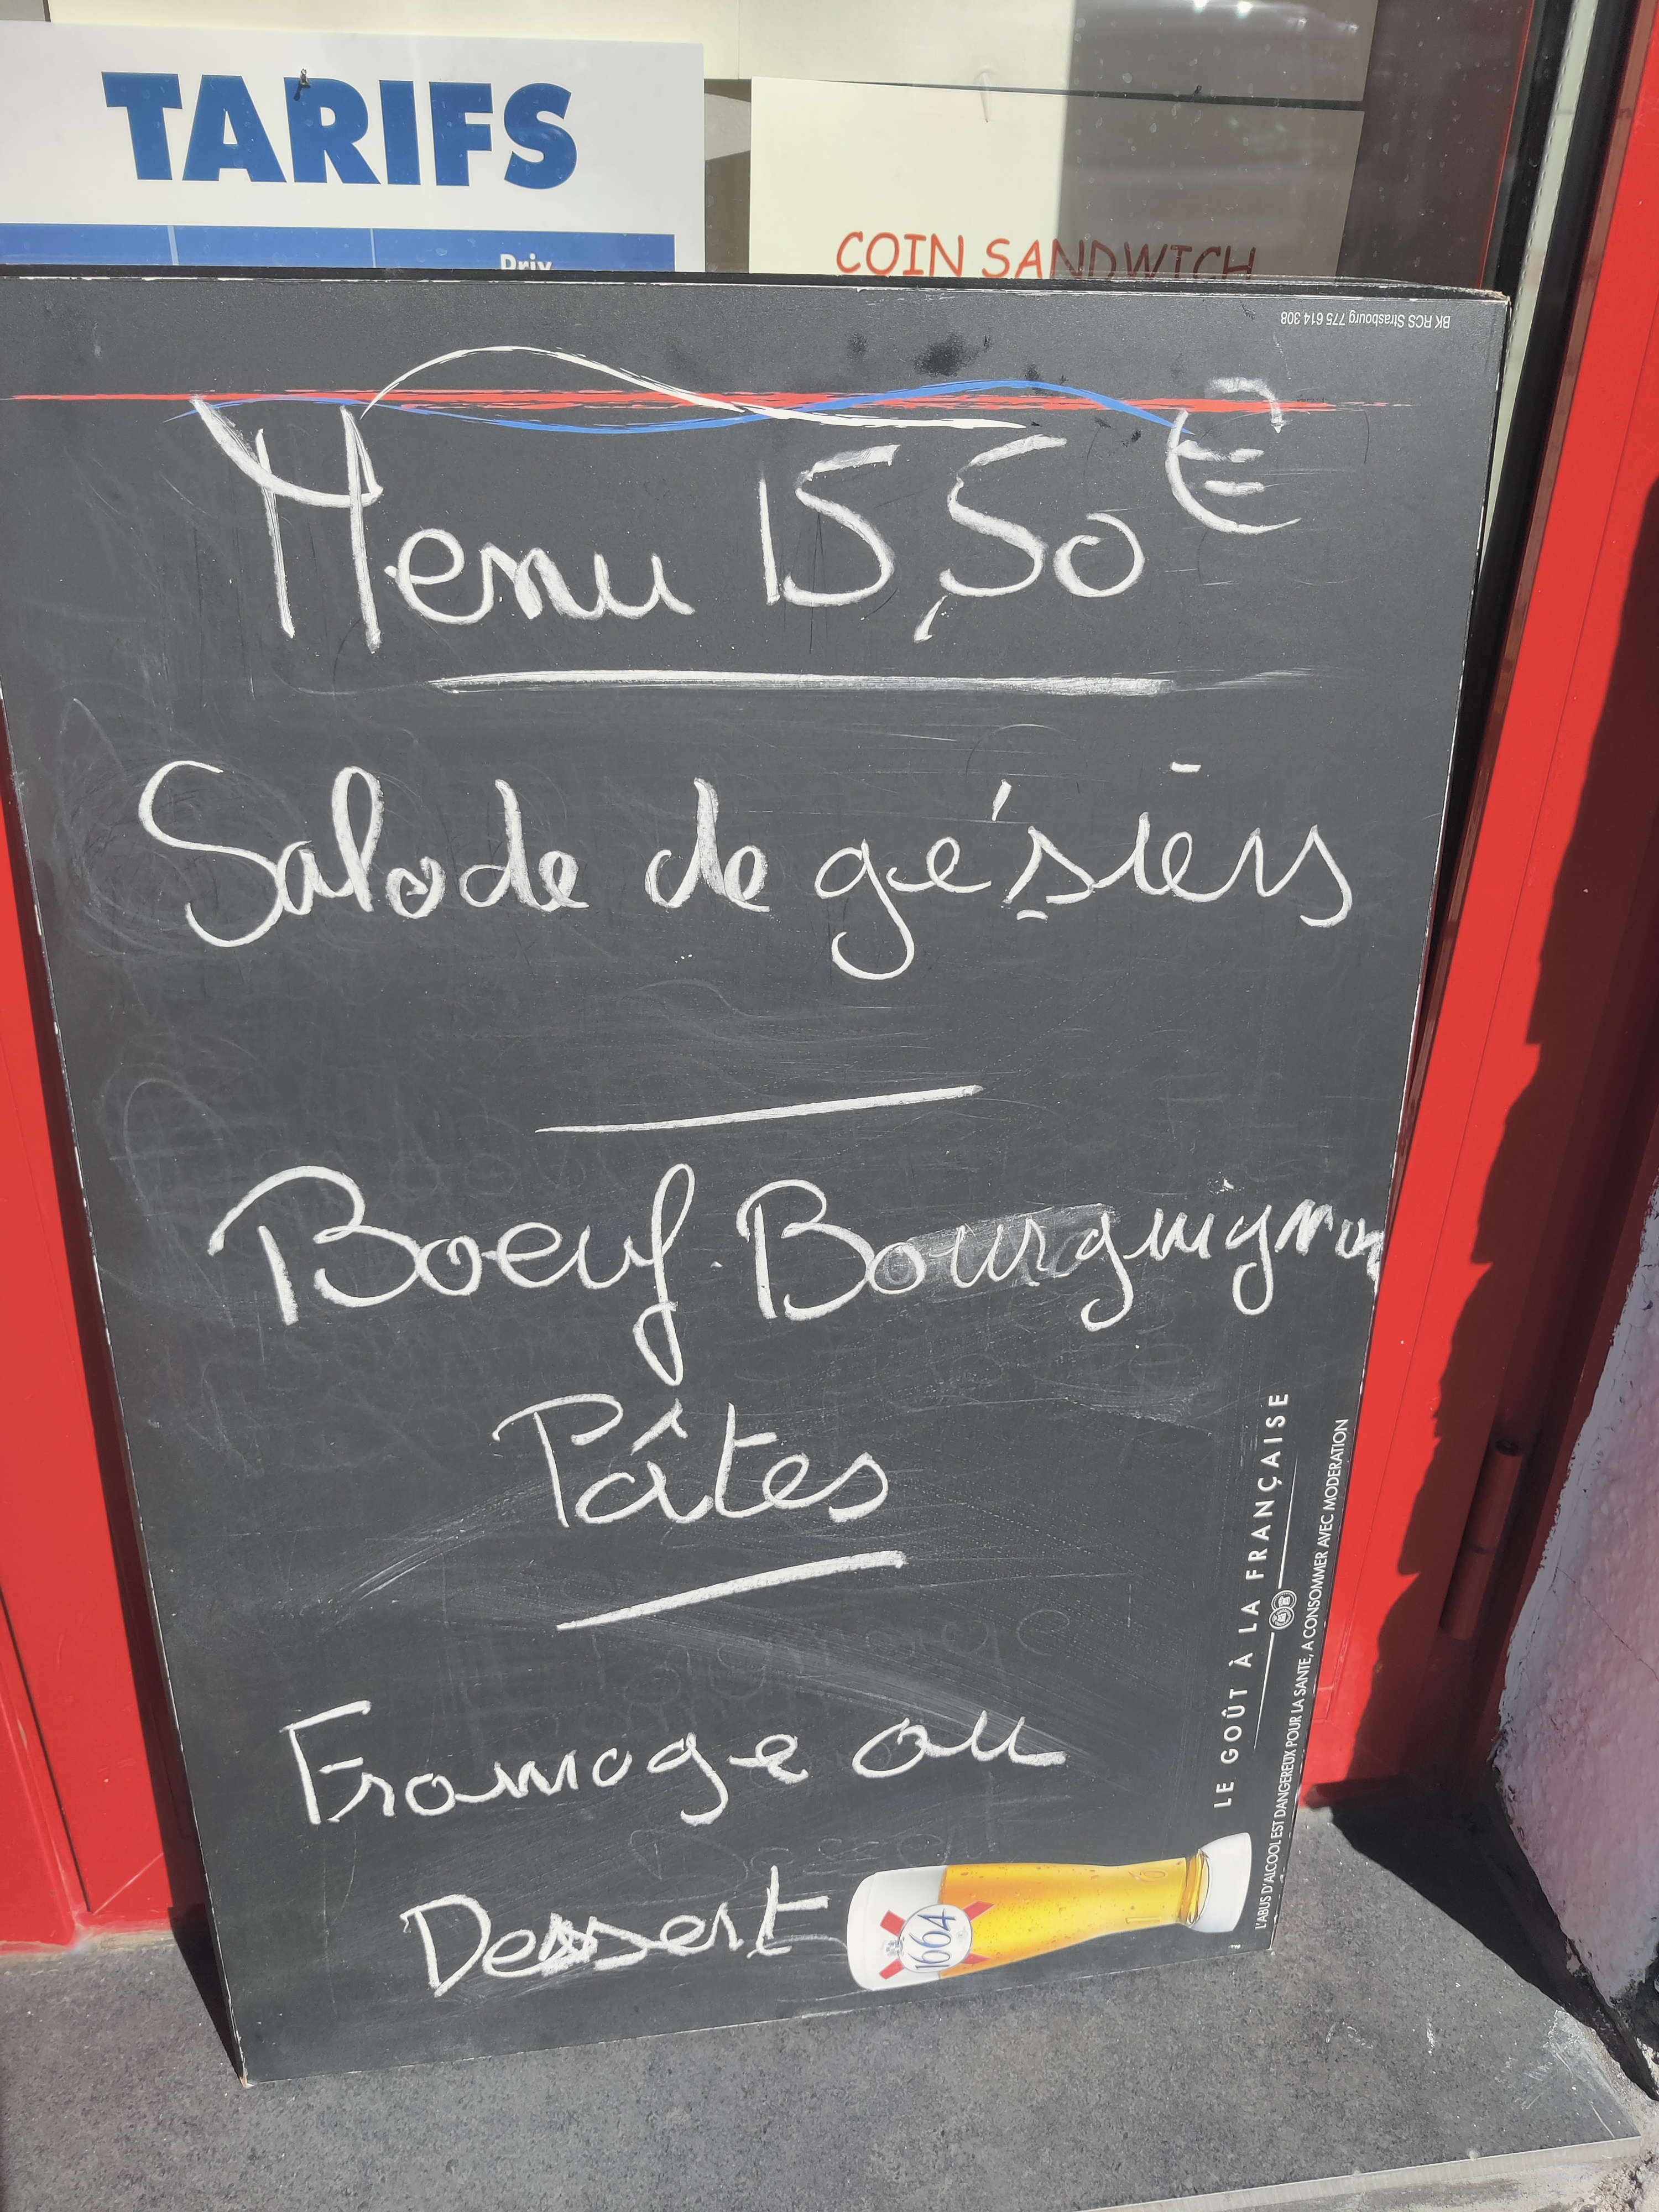 TARIFS
Prix
COIN SANDWICH
BK RCS Strasbourg 775 614 308
Menu 15,50€
Salade de gésiers
Boeuf Bourguignon
Pâtes
Fromage ou
Dessert
1664
LE GOÛT À LA FRANÇAISE
L'ABUS D'ALCOOL EST DANGEREUX POUR LA SANTE, A CONSOMMER AVEC MODERATION